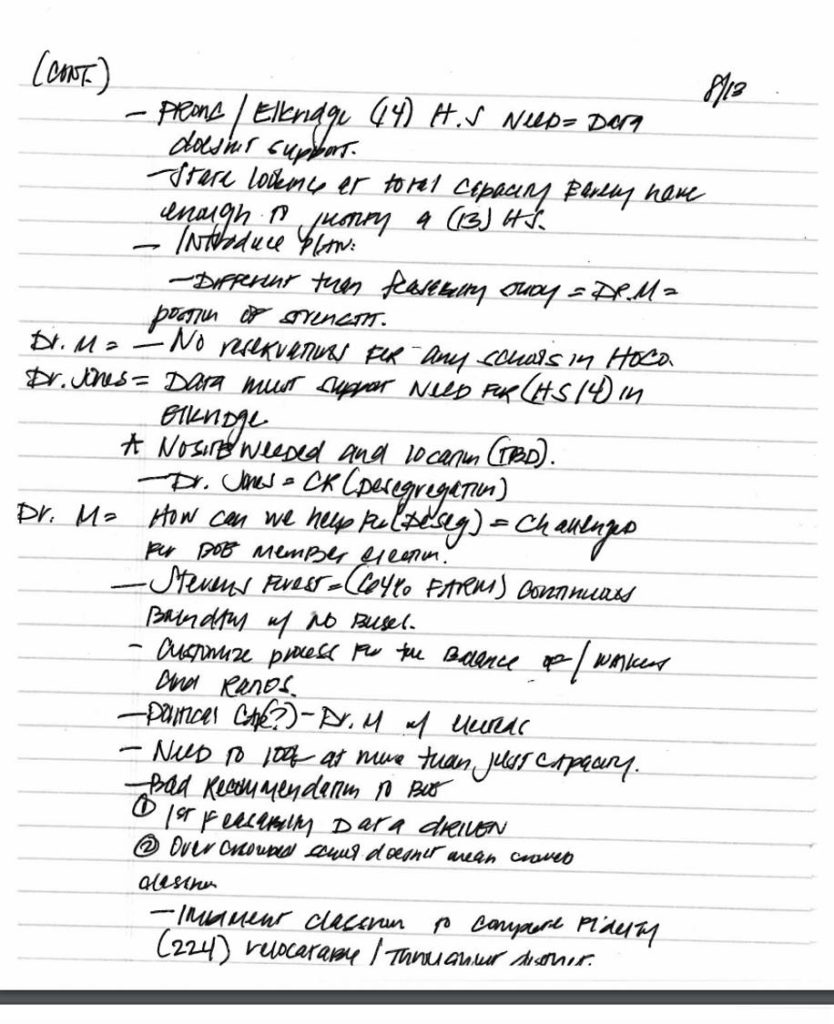 (CONT.)
8/13
- / Elkridge (14) H.S NEED = DATA
doesn't support.
- State looking at total capacity Barely have
enough to justify a (13) HS.
- INtroduce plan:
- Different than feasibility study = DR. M =
position of strength.
Dr. M = - No reservations FOR any schools in HOCO.
Dr. Jones = Data must support NEED FOR (HS 14) in
Elkridge
* No site Needed and location (TBD).
- Dr. Jones = CR (Desegregation)
Dr. M = How can we help For (Deseg) = Challenges
For BOE member election.
- Stevens Forest = (64% FARMS) continuous
Boundary w/ no Buses.
- Customize process for the Balance of / walkers
and
- Political (?) - Dr. M w/
- Need to look at more than just capacity.
- Bad Recommendation to BOE
① 1st Feasibility Data dRIVEN
② Over crowded school doesn't mean crowded
classroom
- classroom to compare Fidelity
(224) relocatable / Throughout district.